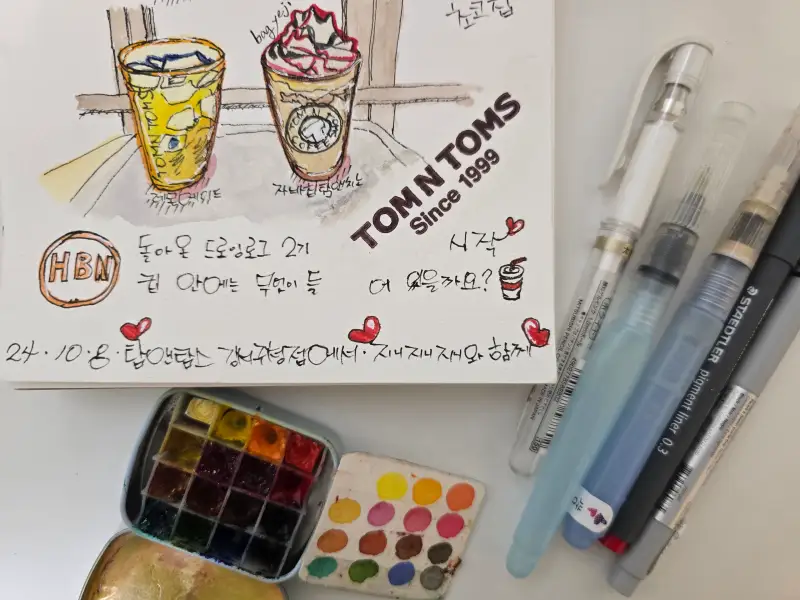 bagyeji
초코칩
TOMNTOMS
레몬에이드
TOM N TOMS
Since 1999
HBN
돌아온 드로잉로그 2기 시작
컵 안에는 무엇이 들어 있을까요?
24.10.8. 탐앤탐스 강서구청점에서. 지니지니쟤와 함께
STAEDTLER pigment liner 0.3